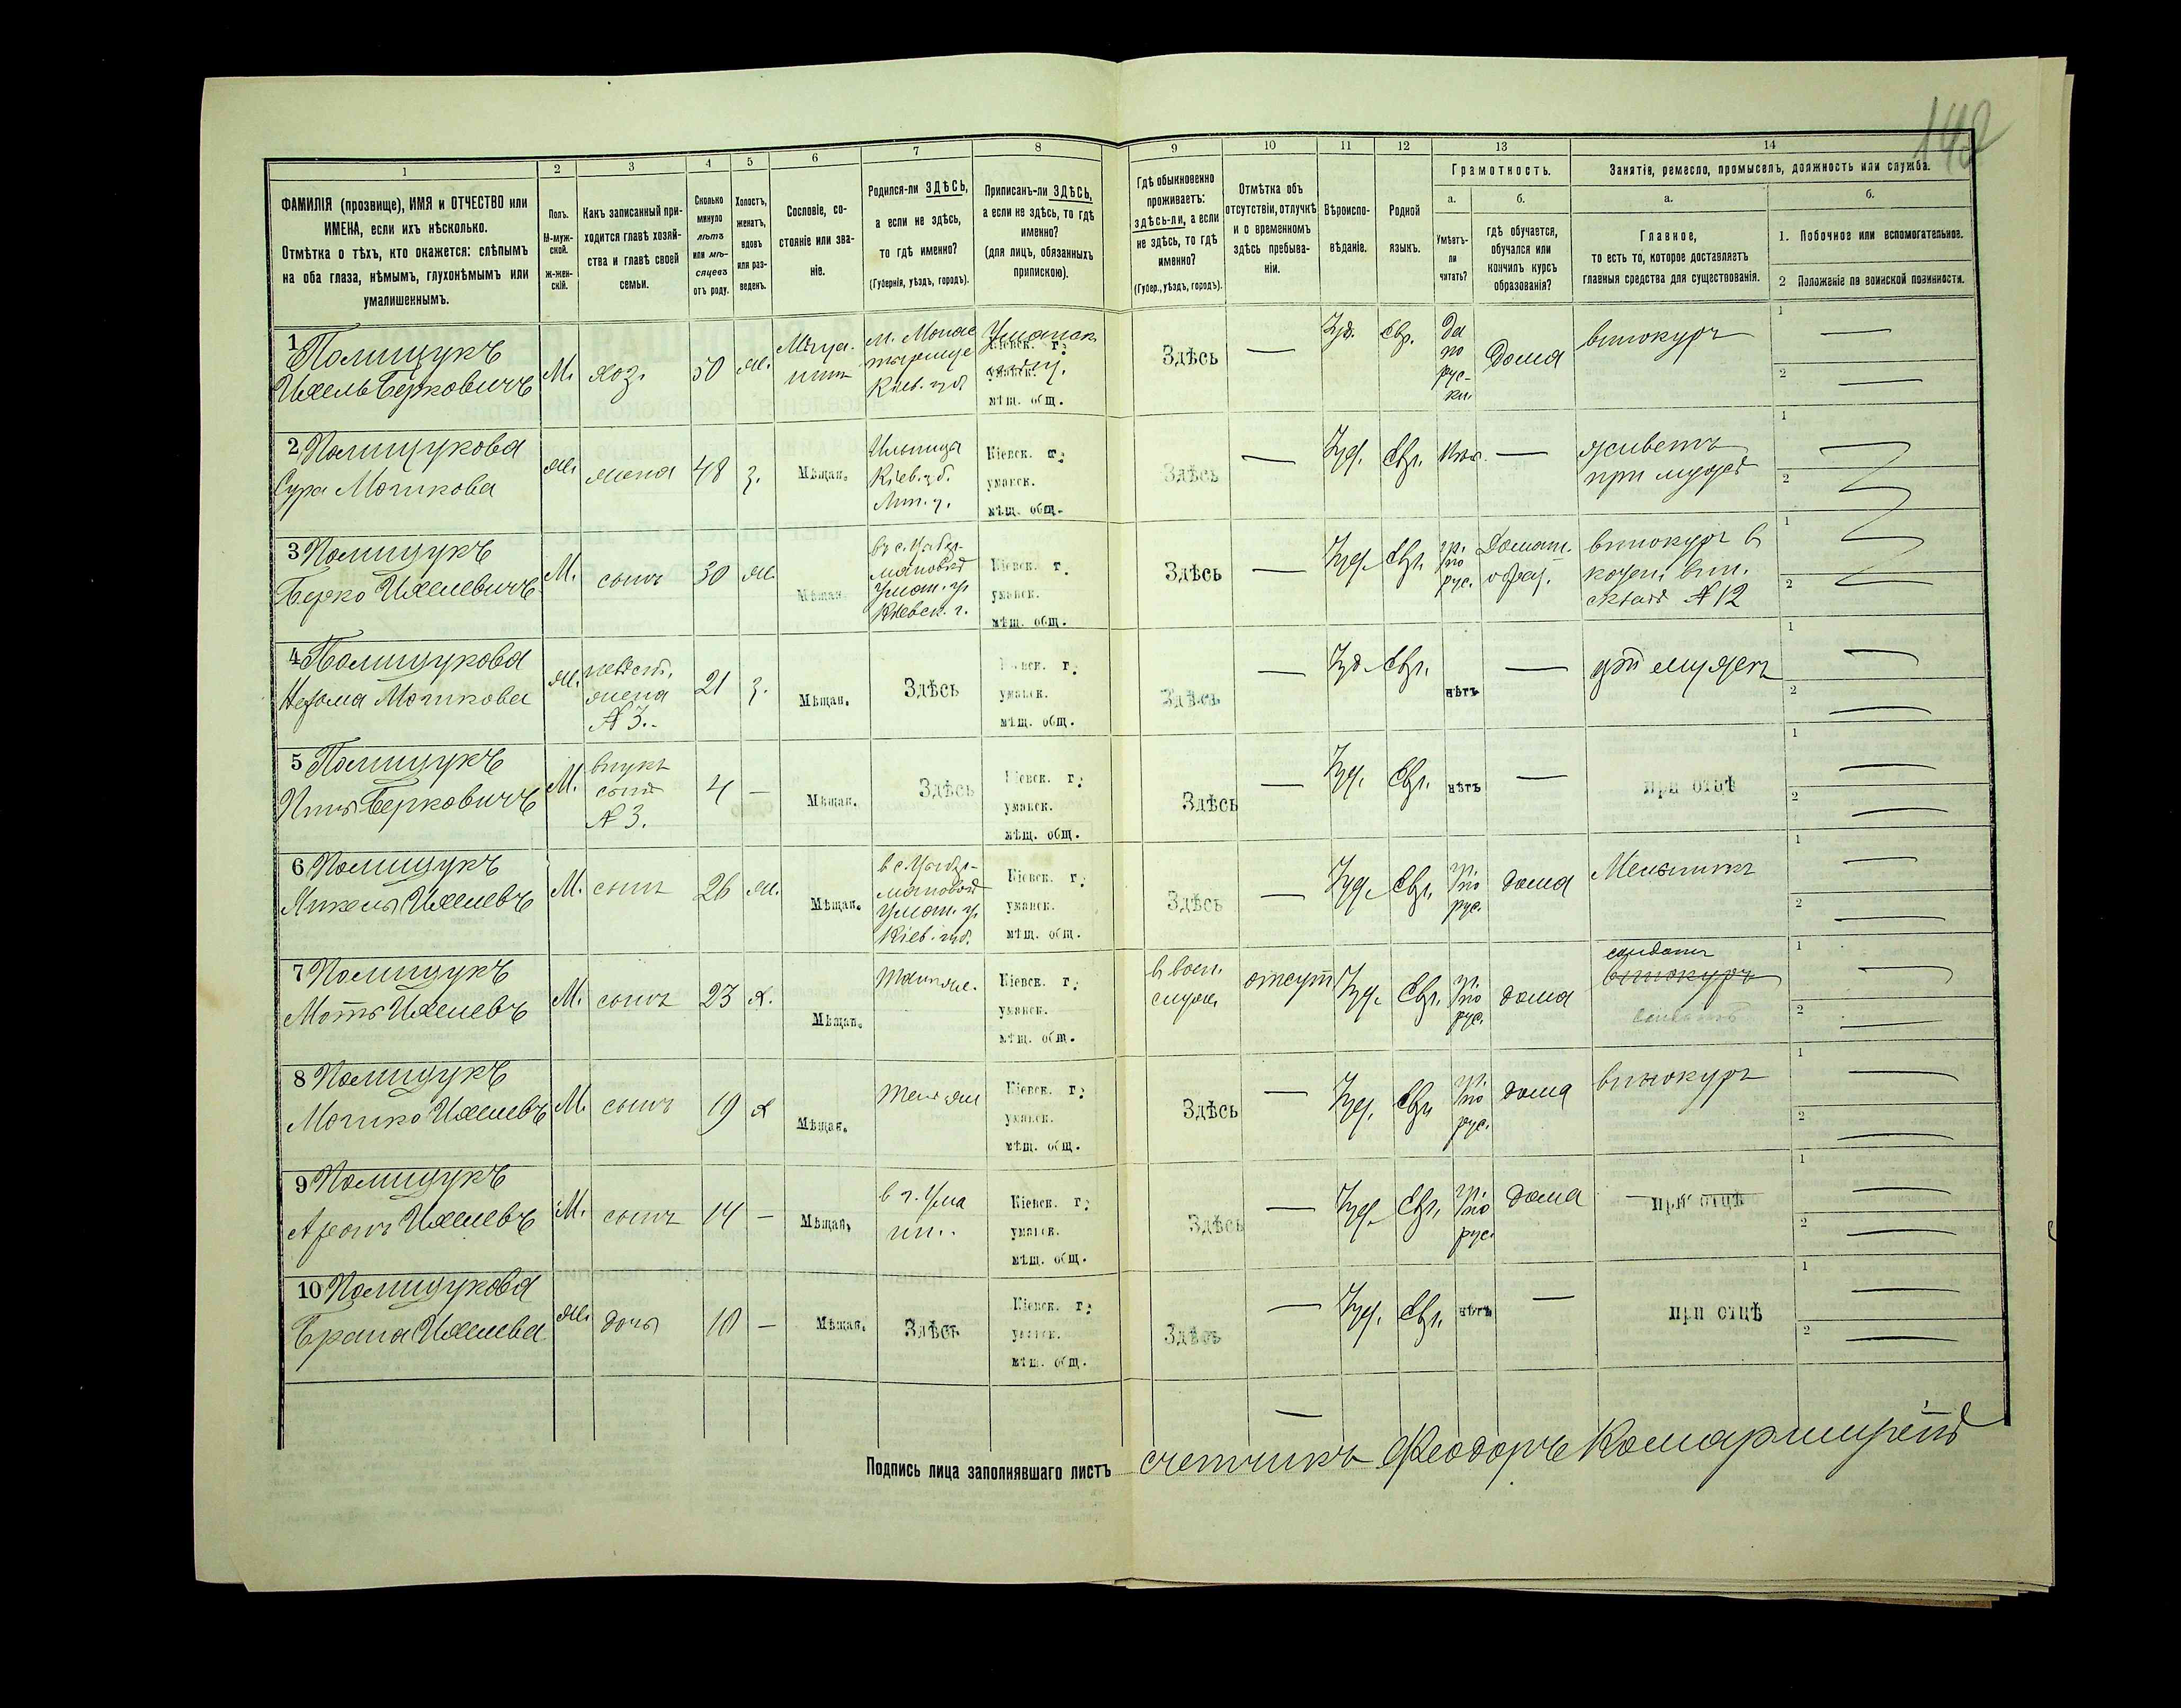 142
1 2 3 4 5 6 7 8 9 10 11 12 13 14
ФАМИЛІЯ (прозвище), ИМЯ и ОТЧЕСТВО или
ИМЕНА, если ихъ нѣсколько.
Отмѣтка о тѣхъ, кто окажется: слѣпымъ
на оба глаза, нѣмымъ, глухонѣмымъ или
умалишеннымъ.
Полъ.
М-муж-
ской.
ж-жен-
скій.
Какъ записанный при-
ходится главѣ хозяй-
ства и главѣ своей
семьи.
Сколько
минуло
лѣтъ
или мѣ-
сяцевъ
отъ роду.
Холостъ,
женатъ,
вдовъ
или раз-
веденъ.
Сословіе, со-
стояніе или зва-
ніе.
Родился-ли ЗДѢСЬ,
а если не здѣсь,
то гдѣ именно?
(Губернія, уѣздъ, городъ).
Приписанъ-ли ЗДѢСЬ,
а если не здѣсь, то гдѣ
именно?
(для лицъ, обязанныхъ
припискою).
Гдѣ обыкновенно
проживаетъ:
здѣсь-ли, а если
не здѣсь, то гдѣ
именно?
(Губер., уѣздъ, городъ).
Отмѣтка объ
отсутствіи, отлучкѣ
и о временномъ
здѣсь пребыва-
ніи.
Вѣроиспо-
вѣданіе.
Родной
языкъ.
Грамотность.
а.
Умѣетъ-
ли
читать?
б.
гдѣ обучается,
обучался или
кончилъ курсъ
образованія?
Занятіе, ремесло, промыселъ, должность или служба.
а.
Главное,
то есть то, которое доставляетъ
главныя средства для существованія.
б.
1. Побочное или вспомогательное.
2 Положеніе по воинской повинности.
1 Полищукъ
Ихель Берковичъ
М. хоз. 50 ж.
Мѣща-
нин
м. Монас
тырище
Кіев. губ
Уманск
Кіевск. г.
уманск.
мѣщ. общ.
Здѣсь — Іуд. Евр.
Да
по
рус-
ки
Дома
винокуръ
1 —
2 —
2 Полищукова
Сура Мошкова
ж. жена 48 з. Мѣщан.
Кіев. губ.
Лип. у.
Кіевск. г.
уманск.
мѣщ. общ.
Здѣсь — Іуд. Евр. —
живетъ
при мужѣ
1
2
3 Полищукъ
Берко Ихелевичъ
М. сынъ 30 ж. Мѣщан.
Уман. у.
Кіевск. г.
Кіевск. г.
уманск.
мѣщ. общ.
Здѣсь — Іуд. Евр.
гр.
по
рус.
Домаш.
образ.
винокуръ в
казен. вин.
складѣ № 12
1
2
4 Полищукова
Мошкова
ж.
невѣст.
жена
№ 3.
21 з. Мѣщан. Здѣсь
Кіевск. г.
уманск.
мѣщ. общ.
Здѣсь — Іуд. Евр. нѣтъ —
при мужѣ
1 —
2 —
5 Полищукъ
Берковичъ
М.
внукъ
сынъ
№ 3.
4 — Мѣщан. Здѣсь
Кіевск. г.
уманск.
мѣщ. общ.
Здѣсь — Іуд. Евр. нѣтъ — при отцѣ
1 —
2 —
6 Полищукъ
Янкель Ихелевъ
М. сынъ 26 ж. Мѣщан.
Уман. у.
Кіев. губ.
Кіевск. г.
уманск.
мѣщ. общ.
Здѣсь — Іуд. Евр.
гр.
по
рус.
дома
Мельникъ
1 —
2 —
7 Полищукъ
Моть Ихелевъ
М. сынъ 23 х. Мѣщан.
Тамъ же.
Кіевск. г.
уманск.
мѣщ. общ.
в воен.
служ.
отсут Іуд. Евр.
гр.
по
рус.
дома
солдатъ
винокуръ
1 —
2 —
8 Полищукъ
Мошко Ихелевъ
М. сынъ 19 х Мѣщан.
Там же
Кіевск. г.
уманск.
мѣщ. общ.
Здѣсь — Іуд. Евр
гр.
по
рус.
дома
винокуръ
1 —
2 —
9 Полищукъ
Аронъ Ихелевъ
М. сынъ 14 — Мѣщан.
в г. Ума
ни.
Кіевск. г.
уманск.
мѣщ. общ.
Здѣсь — Іуд. Евр.
гр.
по
рус.
дома
при отцѣ
1 —
2 —
10 Полищукова
Брана Ихелева
ж. дочь 10 — Мѣщан. Здѣсь
Кіевск. г.
уманск.
мѣщ. общ.
Здѣсь — Іуд. Евр. нѣтъ — при отцѣ
1 —
2 —
—
Подпись лица заполнявшаго листъ счетчикъ Феодоръ Комарницкій